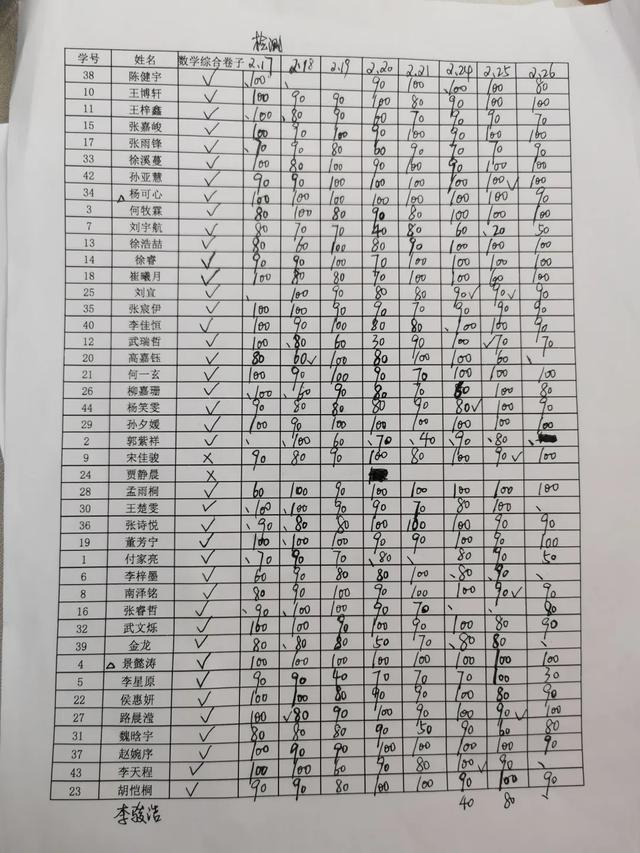 检测
学号 姓名 数学综合卷子 2.17 2.18 2.19 2.20 2.21 2.24 2.25 2.26
38 陈健宇 ✓ 100 、 90 100 、100 100 80
10 王博轩 ✓ 100 90 90 100 80 90 100 100
11 王梓鑫 ✓ 、100 、80 90 60 70 90 90 70
15 张嘉峻 ✓ 100 90 100 90 100 90 100 100
17 张雨锋 ✓ 、90 90 80 60 90 70 70 90
33 徐溪蔓 ✓ 100 80 100 90 100 90 100 100
42 孙亚慧 ✓ 90 90 100 100 100 100 100✓ 100
34 △杨可心 ✓ 100 100 100 100 100 100 100 90
3 何牧霖 ✓ 80 100 80 90 80 100 100 100
7 刘宇航 ✓ 80 70 70 40 80 60 、20 50
13 徐浩喆 ✓ 80 60 100 80 90 100 100 100
14 徐睿 ✓ 90 90 100 70 100 100 100 100
18 崔曦月 ✓ 100 80 80 70 90 100 100 100
25 刘宜 ✓ 、 100 90 80 80 90✓ 90✓ 90
35 张宸伊 ✓ 100 100 90 90 70 90 90 90
40 李佳恒 ✓ 100 90 100 80 80 、100 100 90
12 武瑞哲 ✓ 100 、80 60 30 90 100 ✓70 70
20 高嘉钰 ✓ 80 60✓ 100 80 100 100 60 、
21 何一玄 ✓ 100 90 100 90 70 100 100 100
26 柳嘉珊 ✓ 、100 、60 90 80 70 80 100 80
44 杨笑雯 ✓ 90 80 80 80 90 80✓ 100 90
29 孙夕媛 ✓ 100 90 100 100 100 100 100 100
2 郭紫祥 ✓ 、 、100 60 、70 、40 、90 、80 、
9 宋佳骏 × 90 80 90 100 80 100 90✓ 100
24 贾静晨 ×
28 孟雨桐 ✓ 60 100 90 100 100 100 100 100
30 王楚雯 ✓ 、100 、100 90 90 70 80 100 、
36 张诗悦 ✓ 、90 、80 80 100 100 100 90 90
19 董芳宁 ✓ 100 100 100 90 90 100 90 100
1 付家亮 ✓ 、70 90 70 、80 、 80 90 50
6 李梓墨 ✓ 60 90 80 80 100 、80 、90 、
8 南泽铭 ✓ 80 90 100 90 100 100 90✓ 90
16 张睿哲 ✓ 、90 、100 100 90 70 、 、 80
32 武文烁 ✓ 100 100 90 100 90 100 80 90
39 金龙 ✓ 80 、80 80 50 70 、80 80 、
4 △景懿涛 ✓ 100 100 100 100 100 100 100 100
5 李星原 ✓ 90 90 40 70 70 70 100 30
22 侯惠妍 ✓ 100 100 80 90 90 100 80 90
27 路晨滢 ✓ 100 ✓80 90 100 90 100 90✓ 100
31 魏晗宇 ✓ 80 80 80 90 50 90 60 80
37 赵婉序 ✓ 100 90 90 100 100 100 100 90
43 李天程 ✓ 100 100 60 90 80 100✓ 90 、
23 胡恺桐 ✓ 90 90 80 100 100 90 100 90
李骏浩 40 80 、